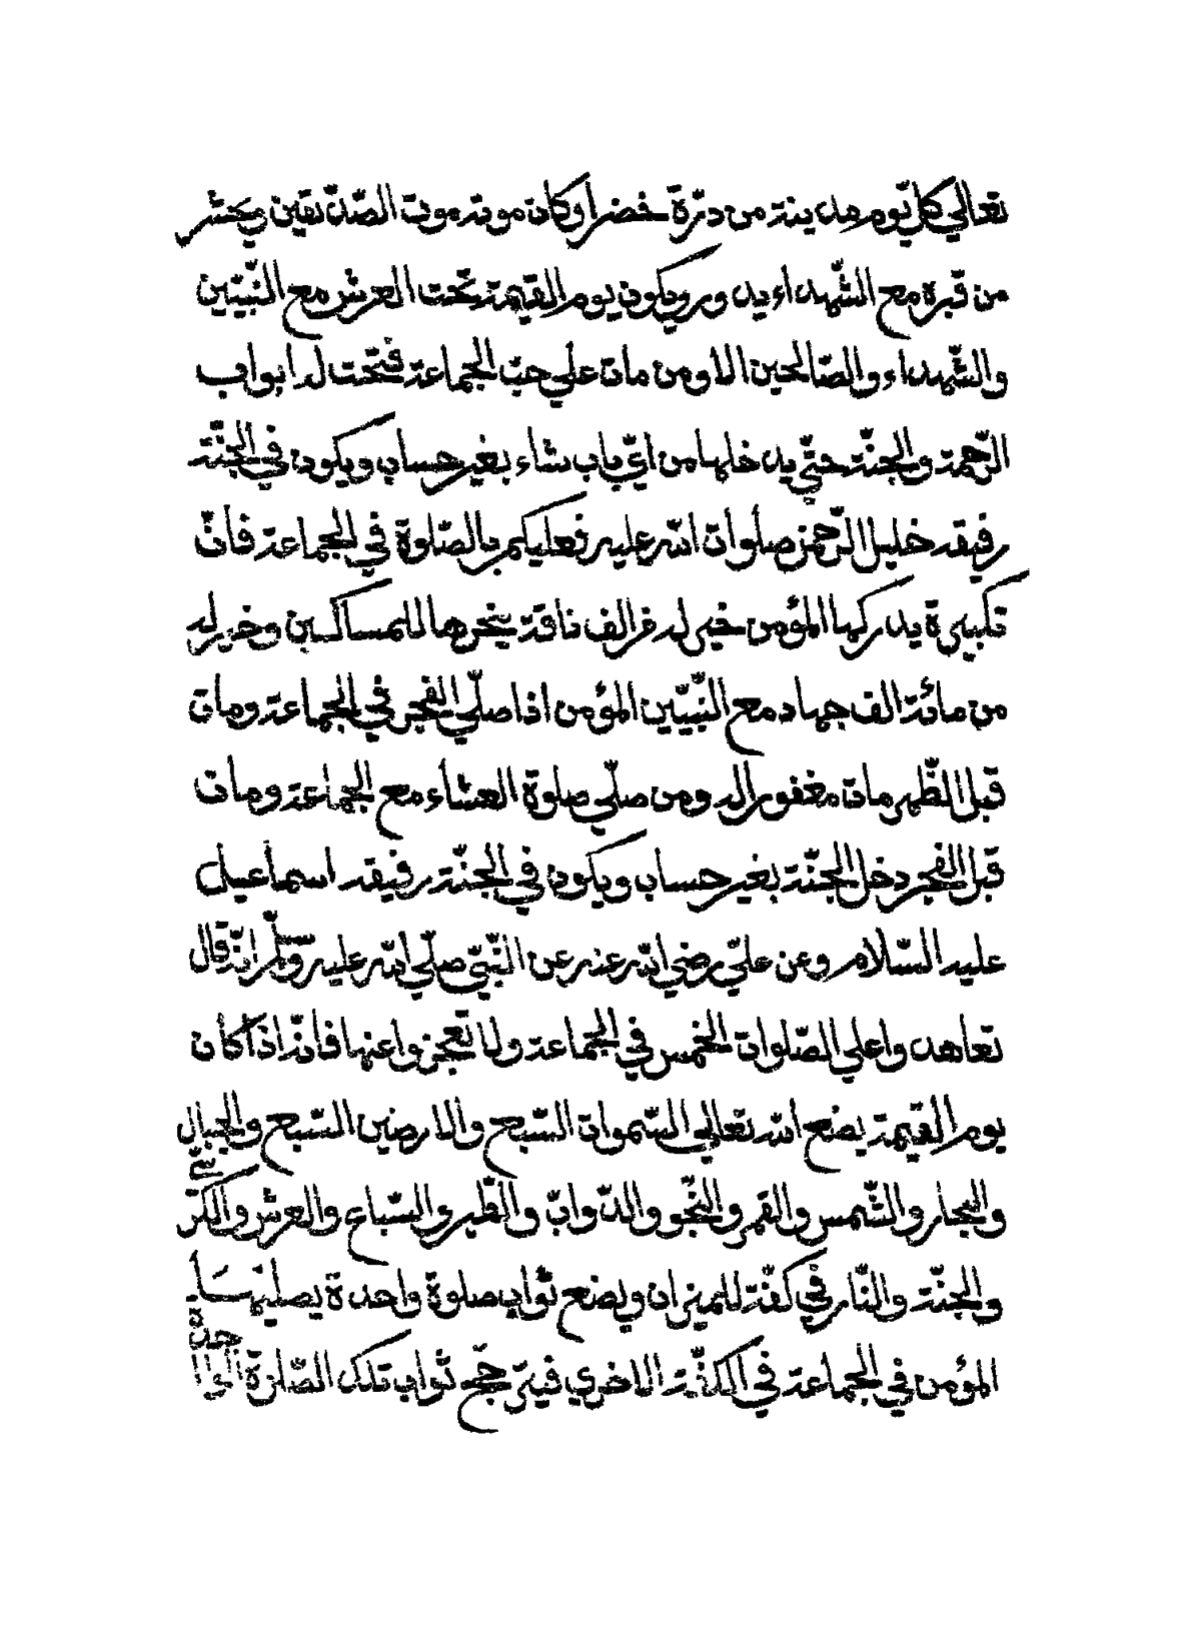 تعالي كلّ يوم مدينة من درّة خضرا وكان موته موت الصّدّيقين ويحشر
من قبره مع الشّهداء يدور ويكون يوم القيمة تحت العرش مع النّبيّين
والشّهداء والصّالحين الا ومن مات علي حبّ الجماعة فتّحت له ابواب
الرّحمة والجنّة حتّي يدخلها من ايّ باب شاء بغير حساب ويكون في الجنّة
رفيقه خليل الرّحمن صلوات الله عليه فعليكم بالصّلوة في الجماعة فانّ
تكبيرة يدركها المؤمن خير له من الف ناقة ينحرها للمساكين وخير له
من مائة الف جهاد مع النّبيّين المؤمن اذا صلّي الفجر في الجماعة ومات
قبل الظّهر مات مغفورا له ومن صلّي صلوة العشاء مع الجماعة ومات
قبل الفجر دخل الجنّة بغير حساب ويكون في الجنّة رفيقه اسماعيل
عليه السّلام وعن عليّ رضي الله عنه عن النّبيّ صلّي الله عليه وسلّم انّه قال
تعاهدوا علي الصّلوات الخمس في الجماعة ولا تعجزوا عنها فانّه اذا كان
يوم القيمة يضع الله تعالي السّموات السّبع والارضين السّبع والجبال
والبحار والشّمس والقمر والنّجو والدّوابّ والطّير والسّباع والعرش والكرسيّ
والجنّة والنّار في كفّة للميزان ويضع ثواب صلوة واحدة يصليها
المؤمن في الجماعة في الكفّة الاخري فيترجّح ثواب تلك الصّلوة